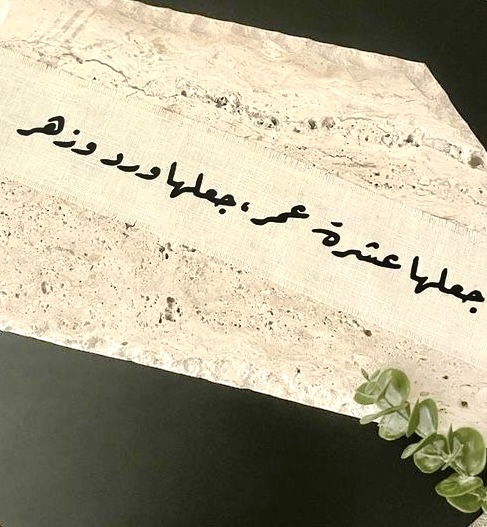 جعلها عشرة عمر، جعلها ورد وزهر